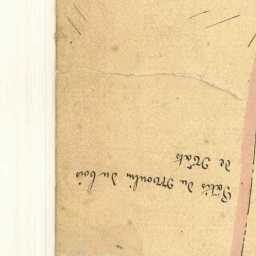 Patis du Moulin du bois
de Mats